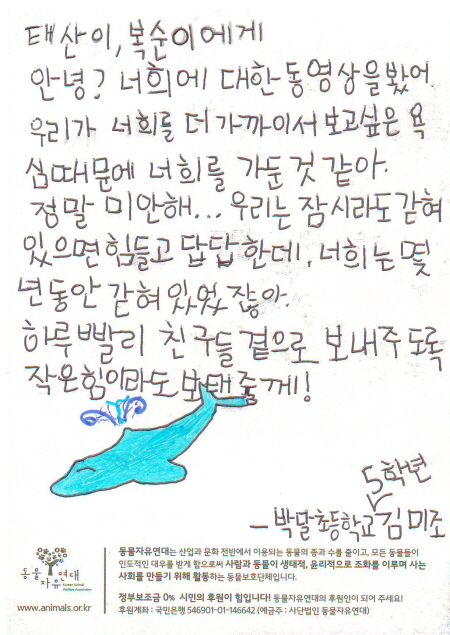 태산이, 복순이에게
안녕? 너희에 대한 동영상을 봤어.
우리가 너희를 더 가까이서 보고싶은 욕
심때문에 너희를 가둔 것 같아.
정말 미안해... 우리는 잠시라도 갇혀
있으면 힘들고 답답한데, 너희는 몇
년동안 갇혀 있었잖아.
하루 빨리 친구들 곁으로 보내주도록
작은힘이라도 보태줄게!
5학년
-박달초등학교 김미조
동물자유연대
Korean Animal
Welfare Association
www.animals.or.kr
동물자유연대는 산업과 문화 전반에서 이용되는 동물의 종과 수를 줄이고, 모든 동물들이
인도적인 대우를 받게 함으로써 사람과 동물이 생태적, 윤리적으로 조화를 이루며 사는
사회를 만들기 위해 활동하는 동물보호단체입니다.
정부보조금 0% 시민의 후원이 힘입니다! 동물자유연대의 후원인이 되어 주세요!
후원계좌 : 국민은행 546901-01-146642 (예금주 : 사단법인 동물자유연대)